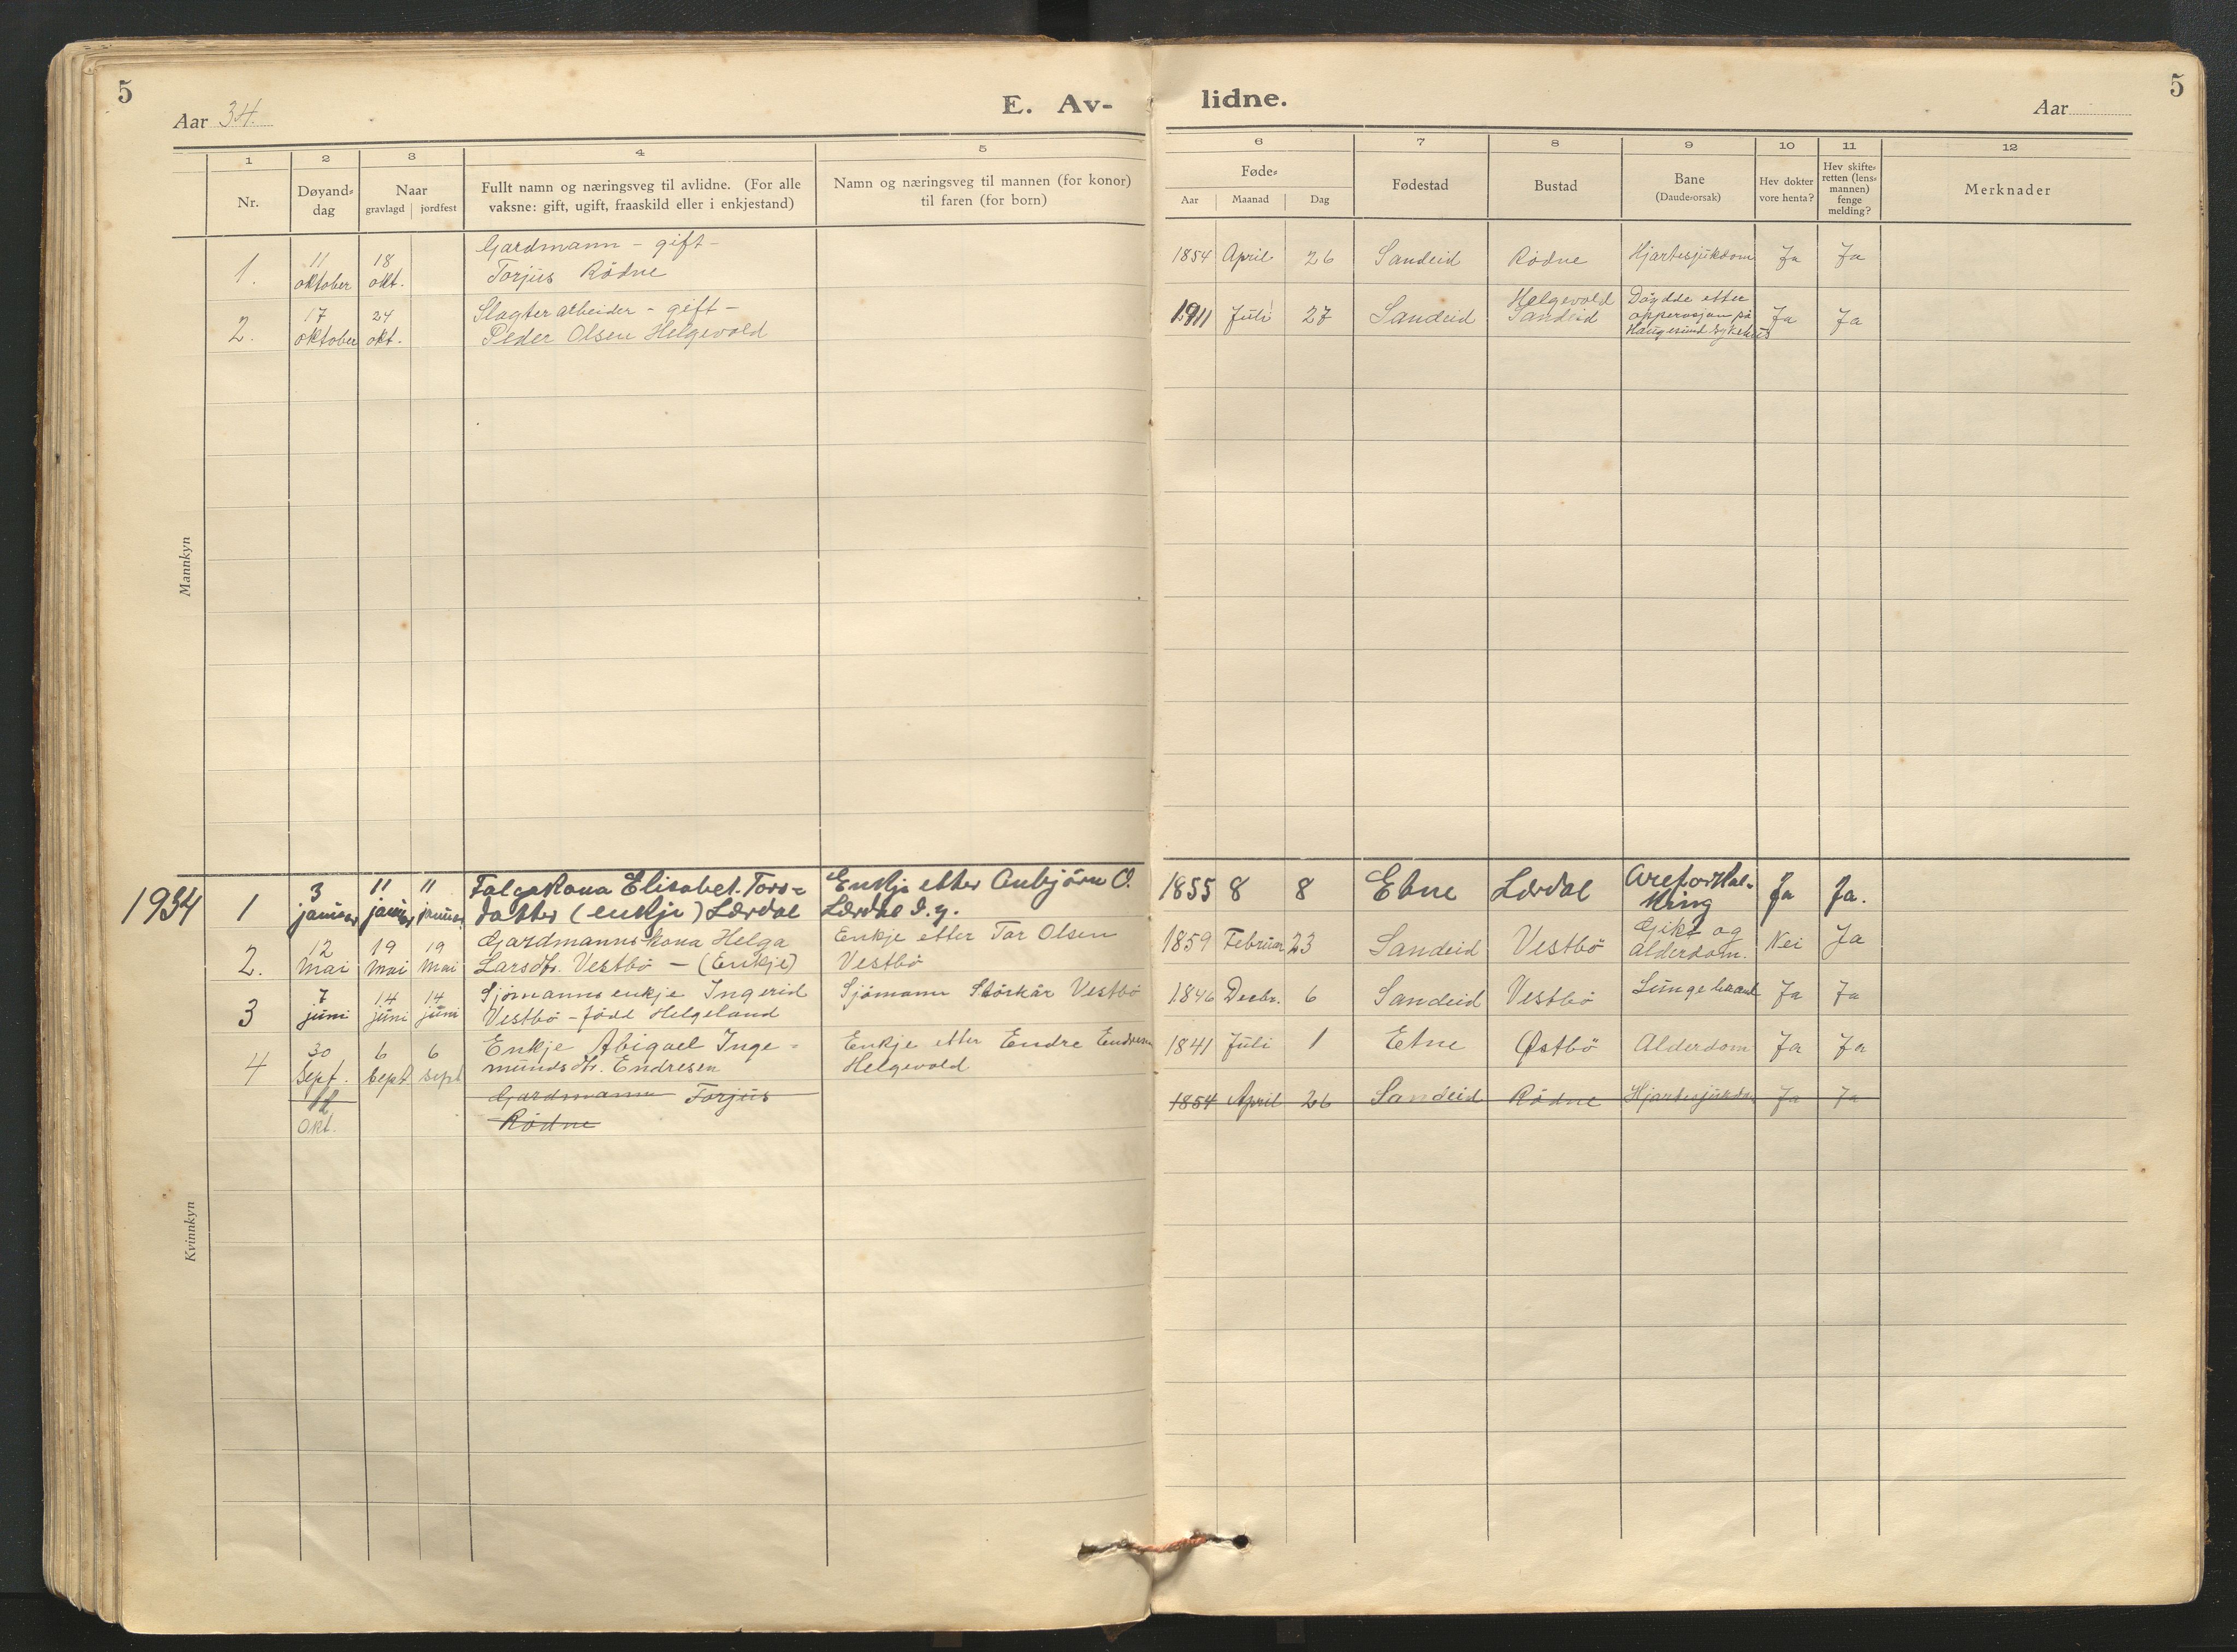 5
Aar 34.
E. Av-
lidne.
Aar
5
1 2 3 4 5 6 7 8 9 10 11 12
Nr.
Døyand-
dag
Naar
gravlagd jordfest
Fullt namn og næringsveg til avlidne. (For alle
vaksne: gift, ugift, fraaskild eller i enkjestand)
Namn og næringsveg til mannen (for konor)
til faren (for born)
Føde-
Aar Maanad Dag
Fødestad
Bustad
Bane
(Daude-orsak)
Hev dokter
vore henta?
Hev skifte-
retten (lens-
mannen)
fenge
melding?
Merknader
Mannkyn
Gardmann - gift -
1. 11 oktober 18 okt. Torjus Rödne 1854 April 26 Sandeid Rödne Hjartesjukdom Ja Ja
Slagter arbeider - gift -
2. 17 oktober 24 okt. Peder Olsen Helgevold 1911 Juli 27 Sandeid Helgevold
Sandeid Döydde etter
oppersjon på
Haugesund Sykehus Ja Ja
1934 1 3 januar 11 januar 11 januar Folgekona Elisabet Tors-
datter (enkje) Lærdal Enkje etter Anbjörn O.
Lærdal d.y. 1855 8 8 Etne Lærdal Areforkal-
kning Ja Ja.
2. 12 Mai 19 Mai 19 Mai Gardmanns kona Helga
Larsdtr. Vestbö - (Enkje) Enkje etter Tor Olsen
Vestbö 1859 Februar 23 Sandeid Vestbö Gikt og
alderdom. Nei Ja
3 7 juni 14 juni 14 juni Sjömanns enkje Ingerid
Vestbö - född Helgeland Sjömann Störkår Vestbö 1846 Decbr. 6 Sandeid Vestbö Lungebetend Ja Ja
4 30 Sept. 6 Sept 6 Sept Enkje Abigael Inge-
mundsdtr. Endresen Enkje etter Endre Endresen
Helgevold 1841 Juli 1 Etne Østbö Alderdom Ja Ja
Okt. Gardmann Torjus
Rödne 1854 April 26 Sandeid Rödne Hjartesjukdom Ja Ja
Kvinnkyn